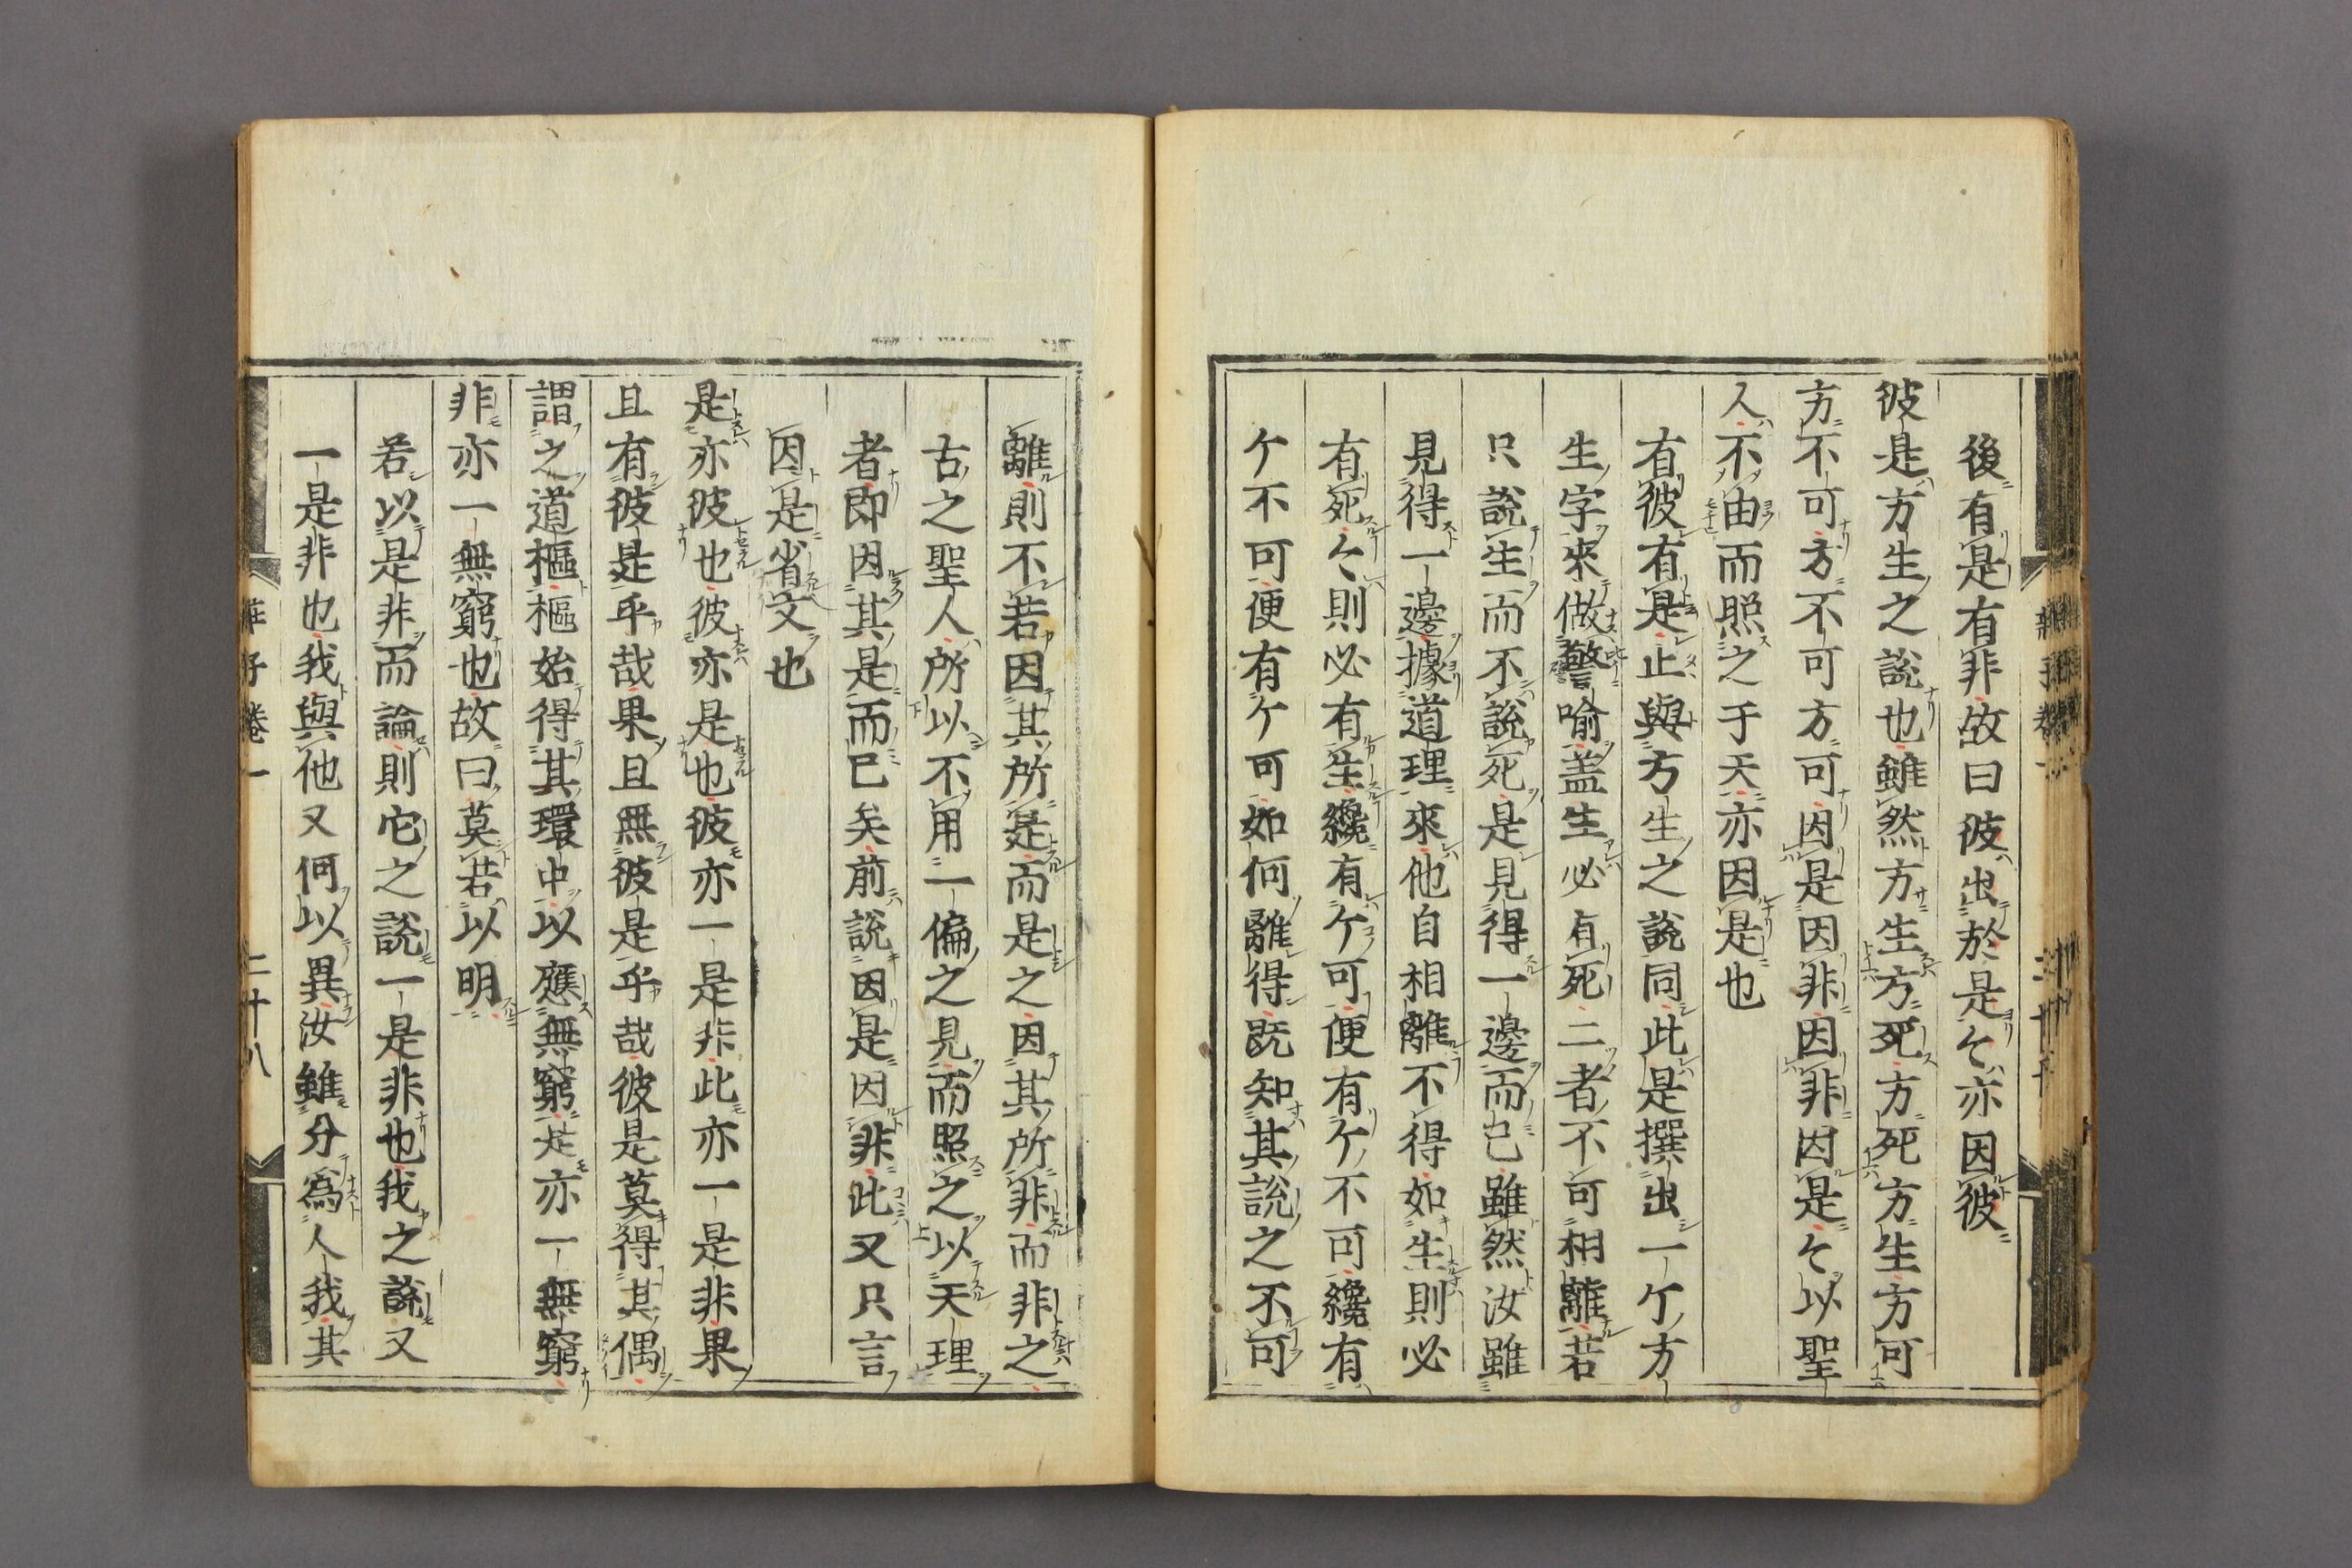 後有是有非故曰彼出於是〻亦因彼
彼是方生之說也雖然方生方死方死方生方可
方不可方不可方可因是因非因非因是〻以聖
人不由而照之于天亦因是也
有彼有是止與方生之說同此是撰出一ケ方
生字來做譬喻盖生必有死二者不可相離若
只說生而不說死是見得一邊而已雖然汝雖
見得一邊據道理來他自相離不得如生則必
有死〻則必有生纔有ケ可便有ケ不可纔有
ケ不可便有ケ可如何離得既知其說之不可
離則不若因其所是而是之因其所非而非之
古之聖人所以不用一偏之見而照之以天理
者即因其是而已矣前說因是因非此又只言
因是省文也
是亦彼也彼亦是也彼亦一是非此亦一是非果
且有彼是乎哉果且無彼是乎哉彼是莫得其偶
謂之道樞樞始得其環中以應無窮是亦一無窮
非亦一無窮也故曰莫若以明
若以是非而論則它之說一是非也我之說又
一是非也我與他又何以異汝雖分爲人我其
莊子卷一 二十八